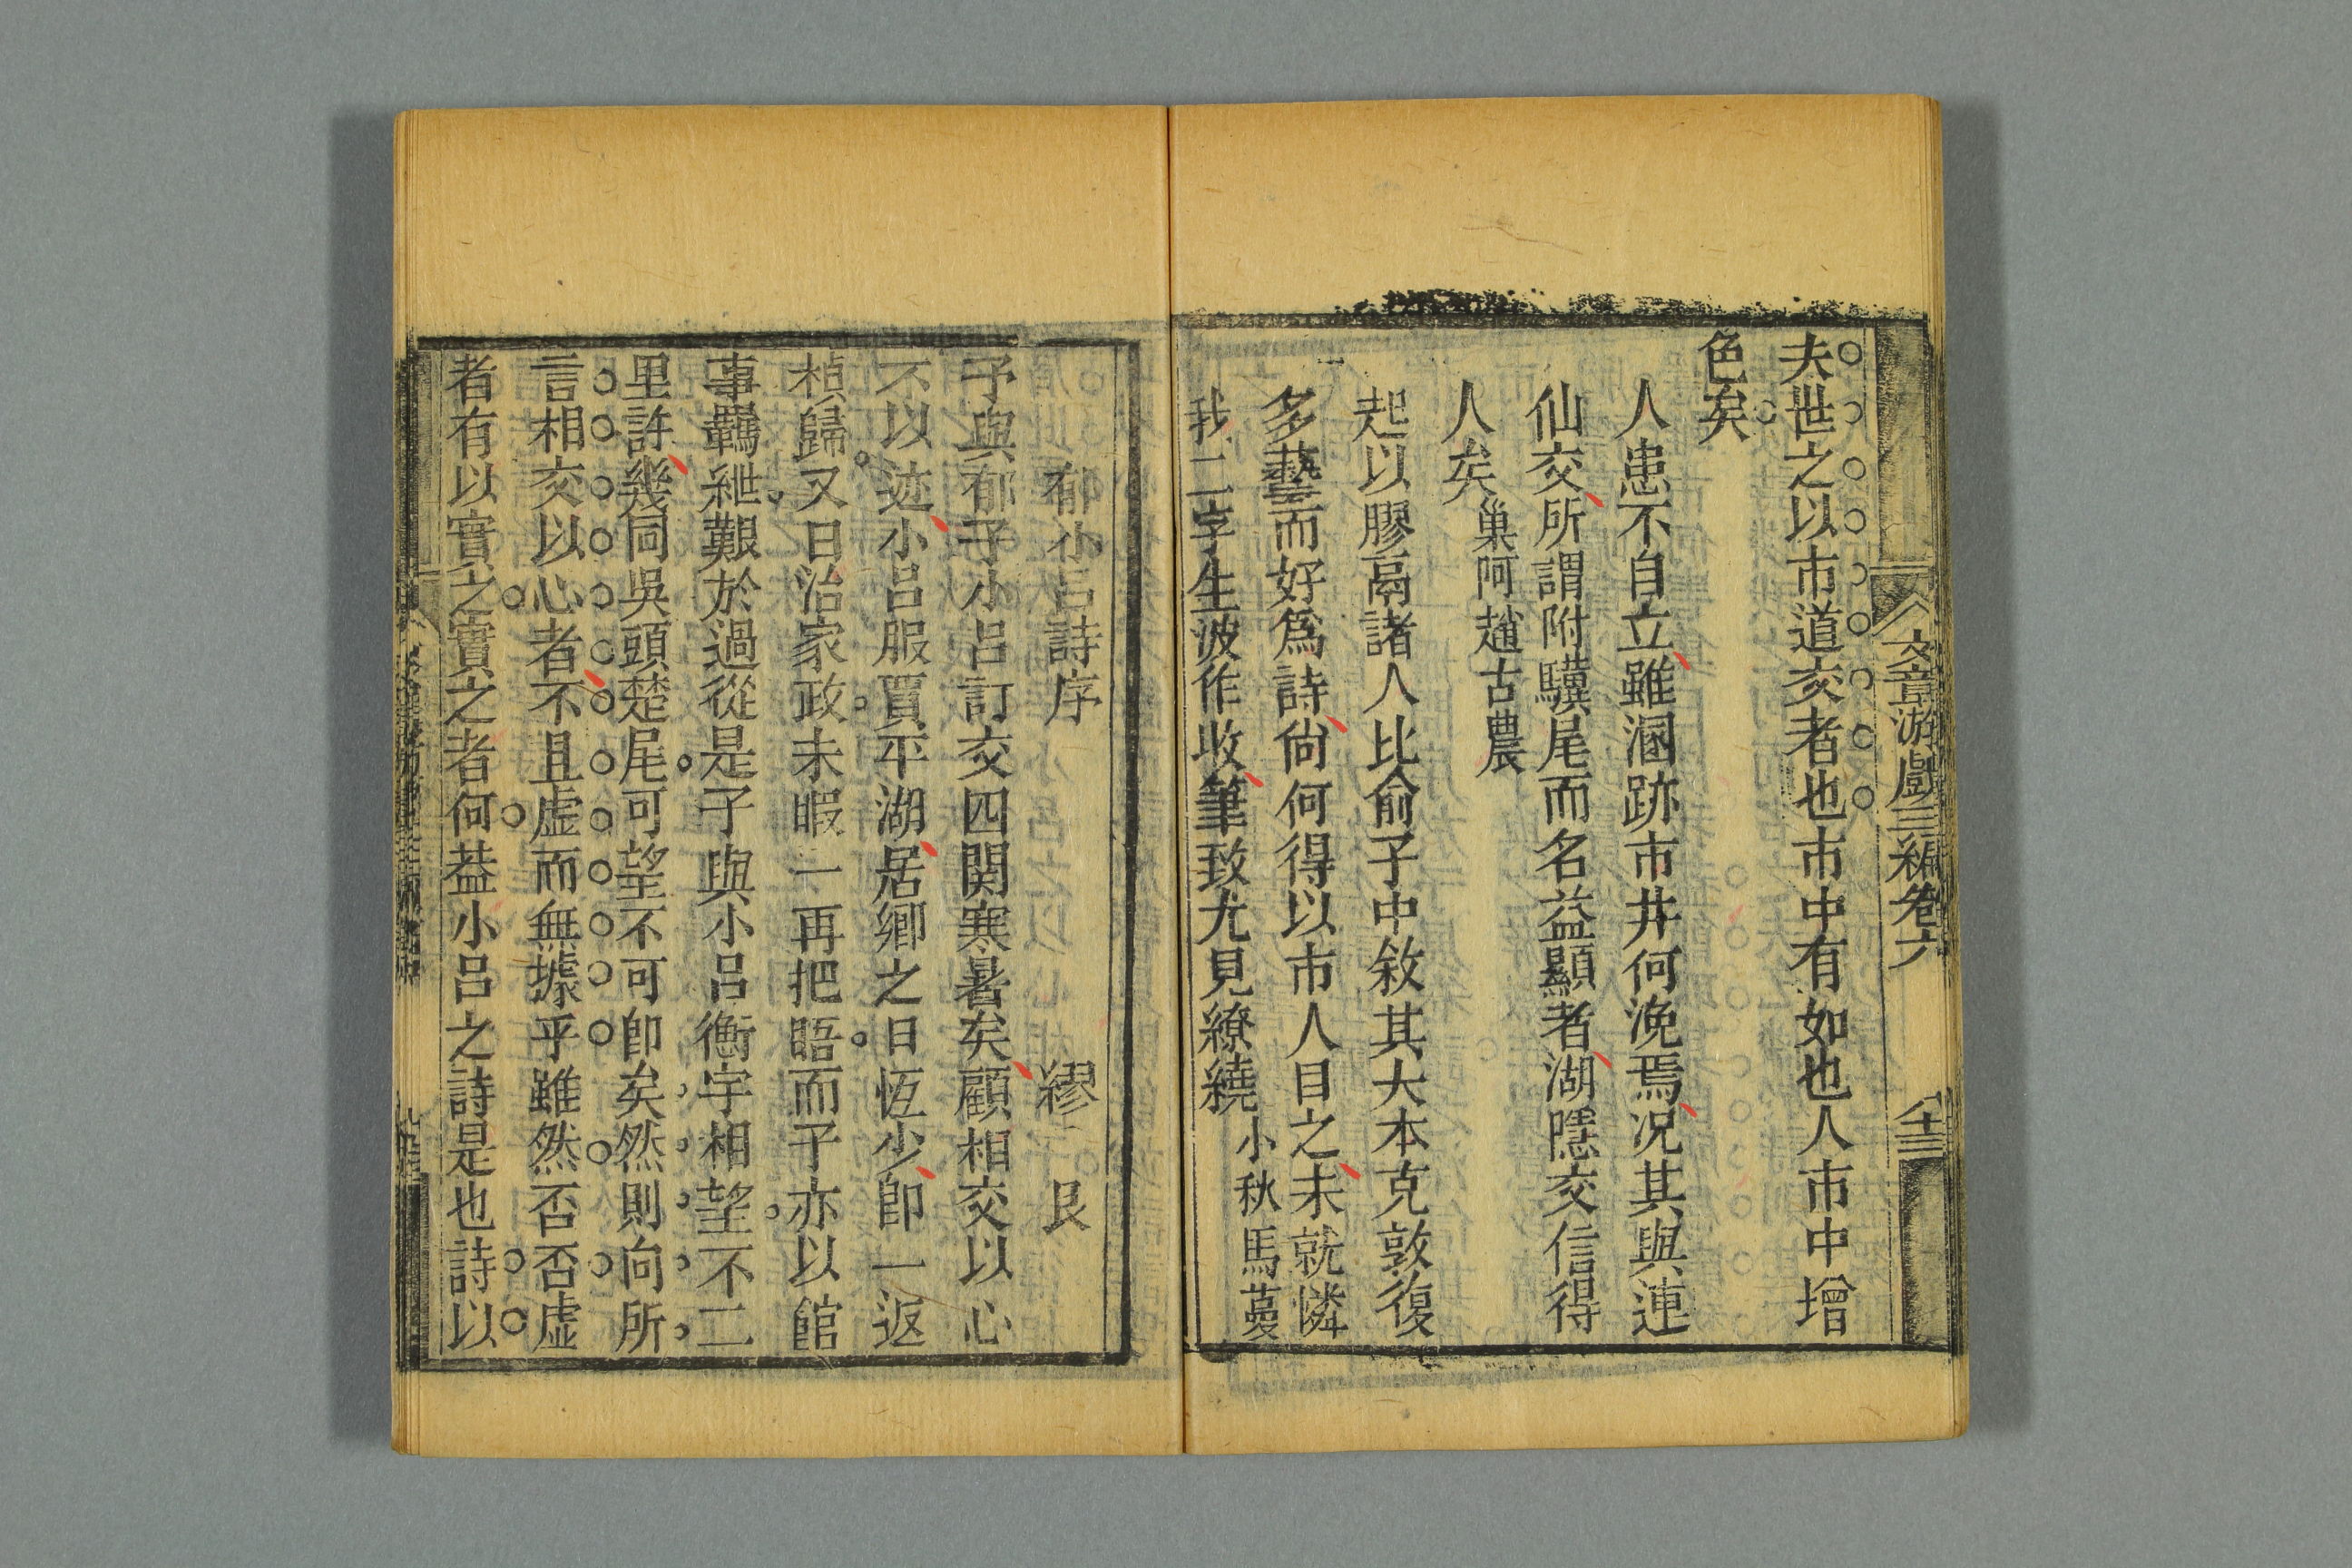 文章游戲三編卷六
十三
夫世之以市道交者也市中有如也人市中增
色矣
人患不自立雖溷跡市井何浼焉況其與連
仙交所謂附驥尾而名益顯者湖隱交信得
人矣巢阿趙古農
起以膠鬲諸人比俞子中敘其大本克敦復
多藝而好爲詩尙何得以市人目之未就憐
我二字生波作收筆致尤見繚繞小秋馬蔓
郁小呂詩序 繆艮
予與郁子小呂訂交四閱寒暑矣顧相交以心
不以迹小呂服賈平湖居鄉之日恆少卽一返
楨歸又日治家政未暇一再把晤而予亦以館
事羈紲艱於過從是予與小呂衡宇相望不二
里許幾同吳頭楚尾可望不可卽矣然則向所
言相交以心者不且虛而無據乎雖然否否虛
者有以實之實之者何葢小呂之詩是也詩以